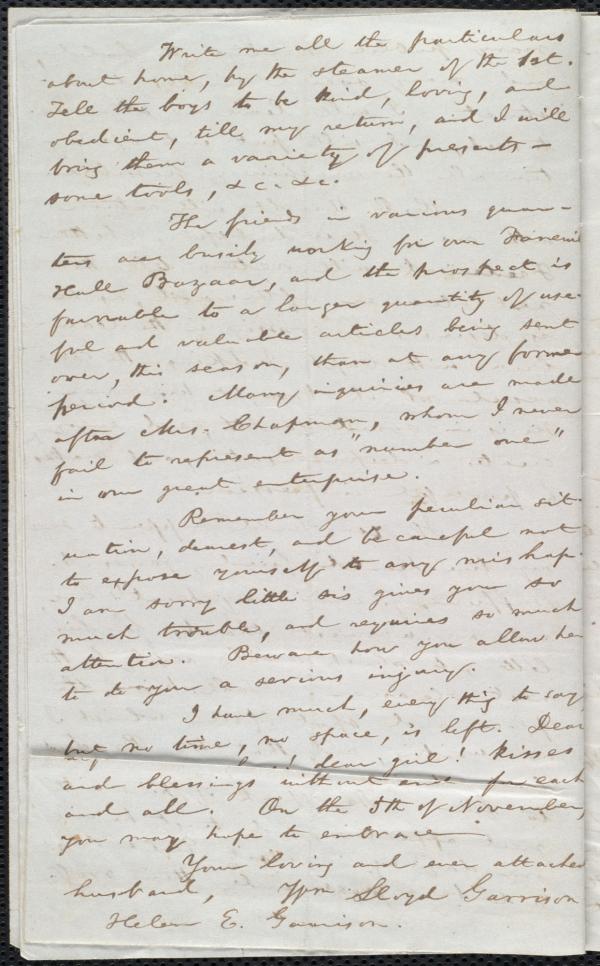 Write me all the particulars
about home, by the steamer of the 1st.
Tell the boys to be kind, loving, and
obedient, till my return, and I will
bring them a variety of presents—
some tools, &c. &c.
The friends in various quar-
ters are busily working for our Faneuil
Hall Bazaar, and the prospect is
favorable to a larger quantity of use-
ful and valuable articles being sent
over, this season, than at any former
period. Many inquiries are made
after Mrs. Chapman, whom I never
fail to represent as "number one"
in our great enterprise.
Remember your peculiar sit-
uation, dearest, and be careful not
to expose yourself to any mishap.
I am sorry little sis gives you so
much trouble, and requires so much
attention. Beware how you allow her
to do you a serious injury.
I have much, every thing to say
but no time, no space, is left. Dear
dear girl! kisses
and blessings without end for each
and all. On the 5th of November,
you may hope to embrace
Your loving and ever attached
husband, Wm Lloyd Garrison
Helen E. Garrison.